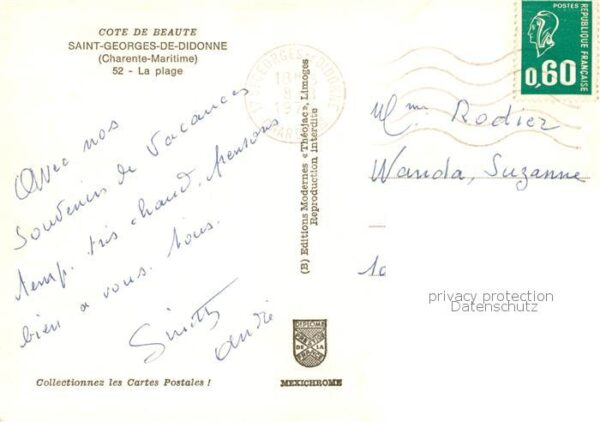 COTE DE BEAUTE
SAINT-GEORGES-DE-DIDONNE
(Charente-Maritime)
52 - La plage
Avec nos
Souvenirs de Vacances
temp. très chaud. Pensons
bien a vous. Tous.
André
Collectionnez les Cartes Postales !
(B) Editions Modernes «Théojac», Limoges
Reproduction interdite
MEXICHROME
POSTES
REPUBLIQUE FRANÇAISE
0,60
Mme Rodier
Wanda, Suzanne
10
privacy protection
Datenschutz